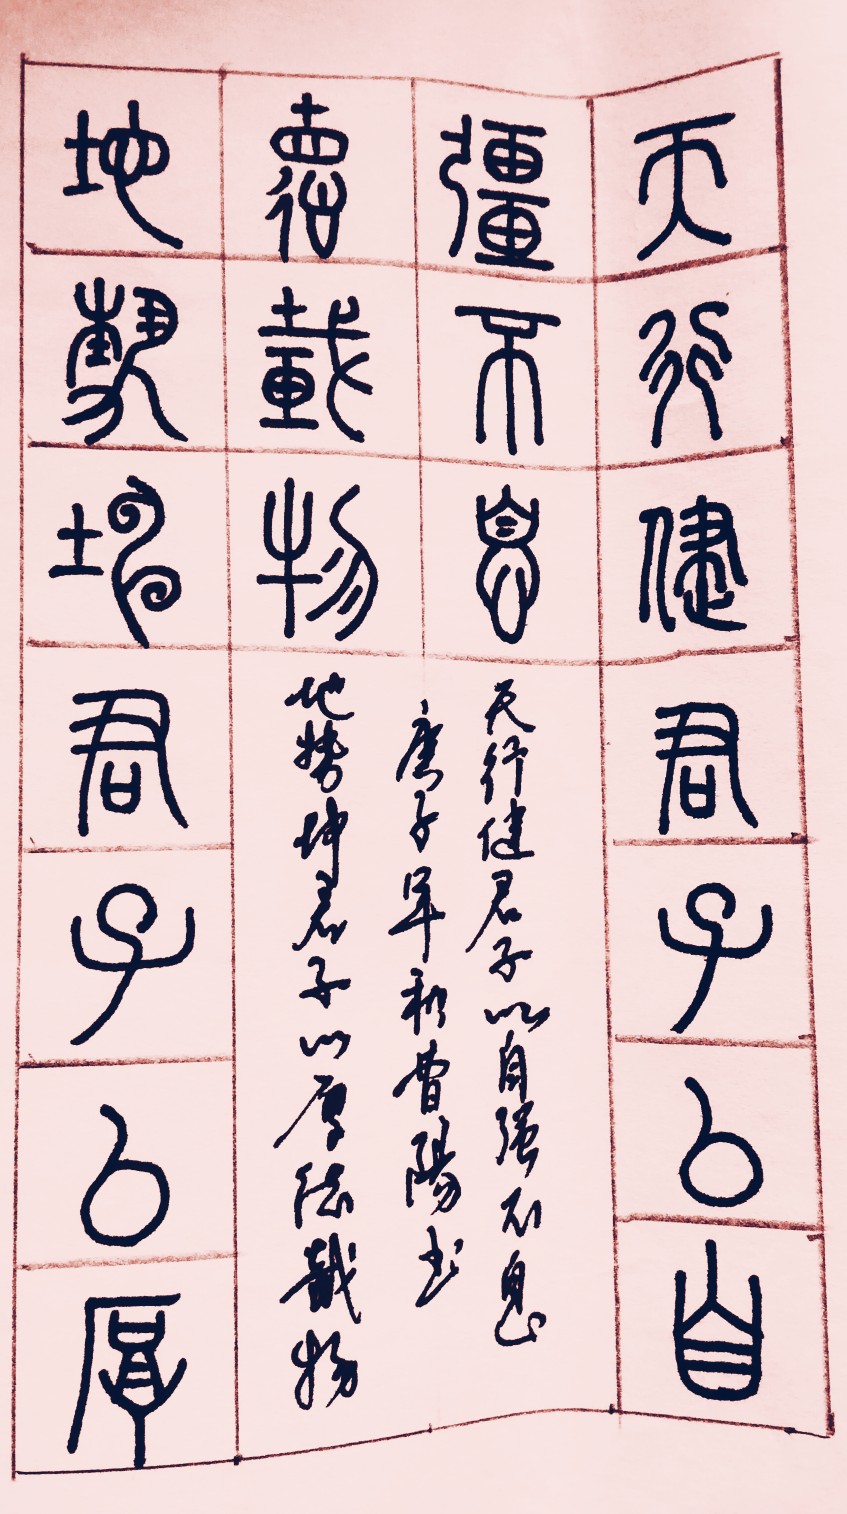 天行健君子以自
彊不息
地勢坤君子以厚
德載物
天行健君子以自强不息
地势坤君子以厚德載物
庚子年秋曹陽书